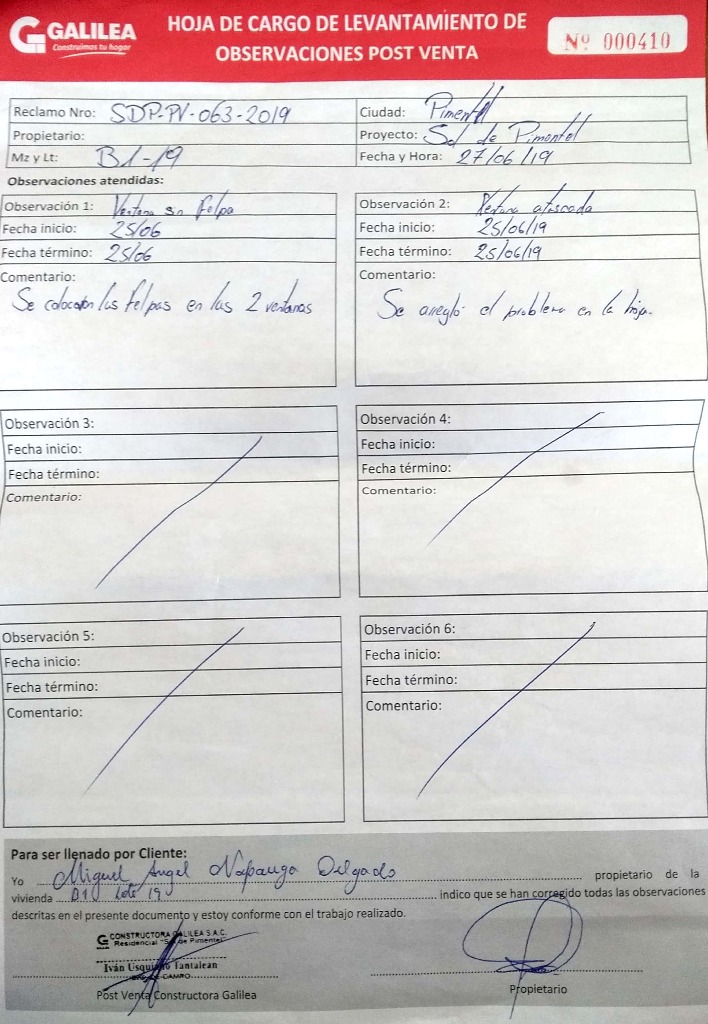 GALILEA
Construimos tu hogar
HOJA DE CARGO DE LEVANTAMIENTO DE
OBSERVACIONES POST VENTA
Nº 000410
Reclamo Nro: SDP-PV-063-2019
Ciudad: Pimentel
Propietario:
Proyecto: Sol de Pimentel
Mz y Lt: B1-19
Fecha y Hora: 27/06/19
Observaciones atendidas:
Observación 1: Ventana sin Felpa
Fecha inicio: 25/06
Fecha término: 25/06
Comentario:
Se colocaron las felpas en las 2 ventanas
Observación 2: Ventana atascada
Fecha inicio: 25/06/19
Fecha término: 25/06/19
Comentario:
Se arregló el problema en la hoja.
Observación 3:
Fecha inicio:
Fecha término:
Comentario:
Observación 4:
Fecha inicio:
Fecha término:
Comentario:
Observación 5:
Fecha inicio:
Fecha término:
Comentario:
Observación 6:
Fecha inicio:
Fecha término:
Comentario:
Para ser llenado por Cliente:
Yo Miguel Angel Delgado propietario de la
vivienda B1 Lote 19 indico que se han corregido todas las observaciones
descritas en el presente documento y estoy conforme con el trabajo realizado.
CONSTRUCTORA GALILEA S.A.C.
Residencial "Sol de Pimentel"
Iván Tantalean
Post Venta Constructora Galilea
Propietario